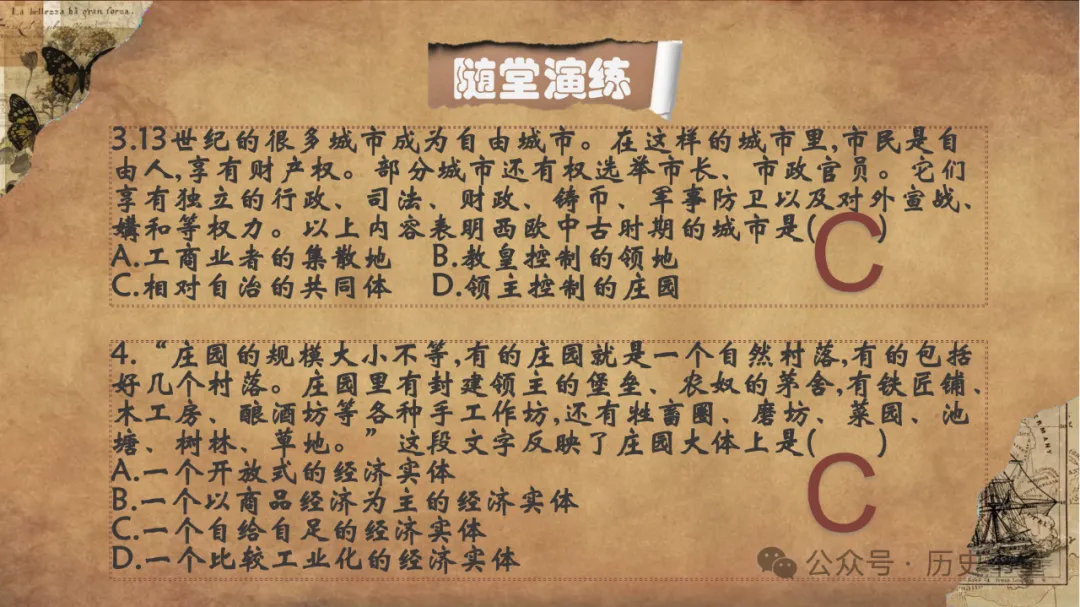 La bellezza hà gran forza.
随堂演练
3.13世纪的很多城市成为自由城市。在这样的城市里,市民是自
由人,享有财产权。部分城市还有权选举市长、市政官员。它们
享有独立的行政、司法、财政、铸币、军事防卫以及对外宣战、
媾和等权力。以上内容表明西欧中古时期的城市是( C )
A.工商业者的集散地 B.教皇控制的领地
C.相对自治的共同体 D.领主控制的庄园
4.“庄园的规模大小不等,有的庄园就是一个自然村落,有的包括
好几个村落。庄园里有封建领主的堡垒、农奴的茅舍,有铁匠铺、
木工房、酿酒坊等各种手工作坊,还有牲畜圈、磨坊、菜园、池
塘、树林、草地。”这段文字反映了庄园大体上是( C )
A.一个开放式的经济实体
B.一个以商品经济为主的经济实体
C.一个自给自足的经济实体
D.一个比较工业化的经济实体
公众号·历史